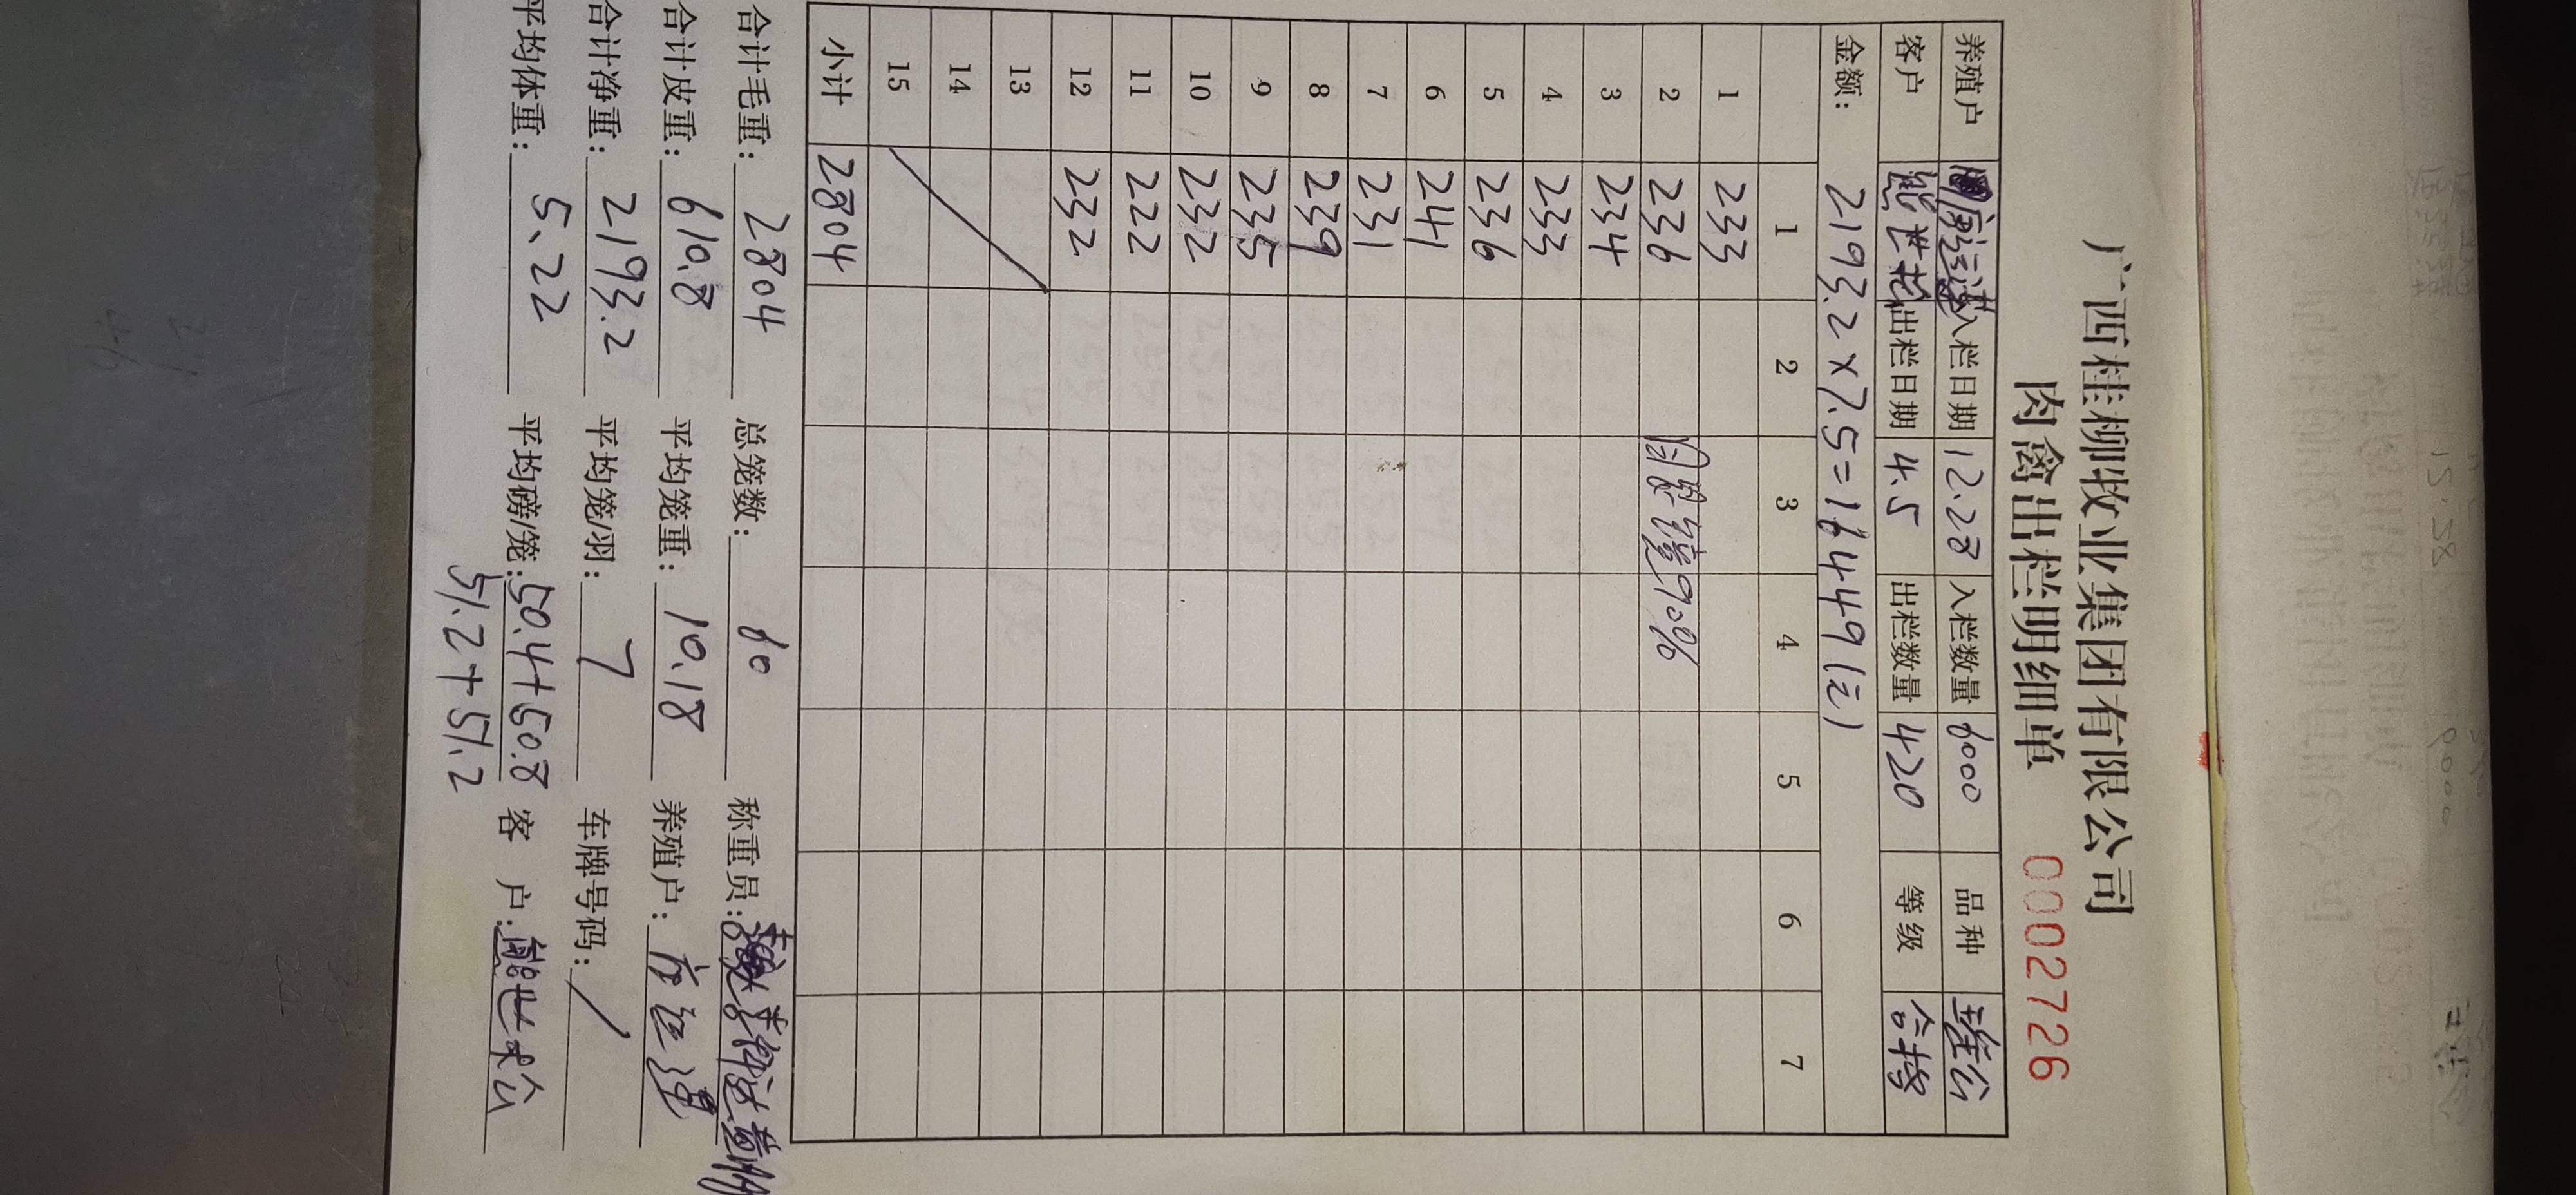 广西桂柳牧业集团有限公司
肉禽出栏明细单 0002726
养殖户 入栏日期 12.28 入栏数量 6000 品种
客户 熊世 出栏日期 4.5 出栏数量 420 等级 合格
金额: 2193.2×7.5=16449(元)
1 2 3 4 5 6 7
1 233
2 236 90%
3 234
4 233
5 236
6 241
7 231
8 239
9 235
10 232
11 222
12 232
13
14
15
小计 2804
合计毛重: 2804 总笼数: 60 称重员:
合计皮重: 610.8 平均笼重: 10.18 养殖户:
合计净重: 2193.2 平均笼/羽: 7 车牌号码: /
平均体重: 5.22 平均磅/笼: 50.4+50.8 客户: 熊世
51.2+51.2